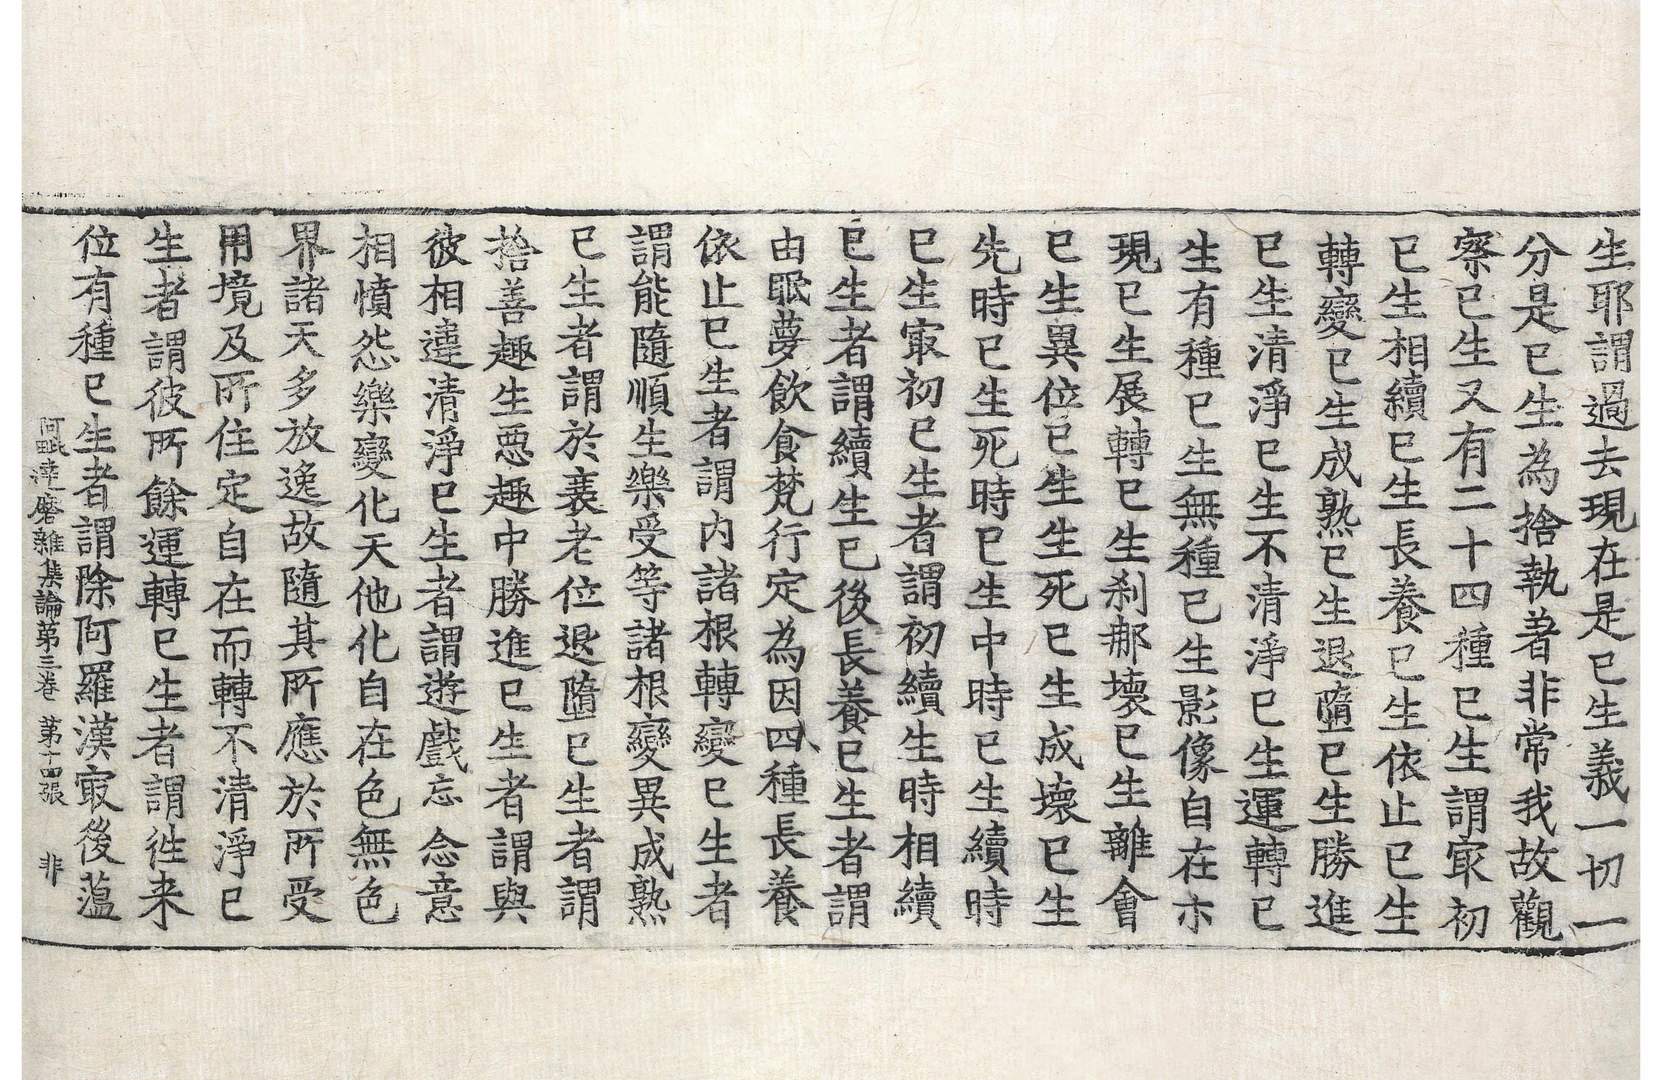 生耶謂過去現在是已生義一切一
分是已生為捨執著非常我故觀
察已生又有二十四種已生謂㝡初
已生相續已生長養已生依止已生
轉變已生成熟已生退墮已生勝進
已生清淨已生不清淨已生運轉已
生有種已生無種已生影像自在示
現已生展轉已生刹那壞已生離會
已生異位已生生死已生成壞已生
先時已生死時已生中時已生續時
已生㝡初已生者謂初續生時相續
已生者謂續生已後長養已生者謂
由眠夢飲食梵行定為因四種長養
依止已生者謂内諸根轉變已生者
謂能隨順生樂受等諸根變異成熟
已生者謂於衰老位退墮已生者謂
捨善趣生惡趣中勝進已生者謂與
彼相違清淨已生者謂遊戲忘念意
相憤怨樂變化天他化自在色無色
界諸天多放逸故隨其所應於所受
用境及所住定自在而轉不清淨已
生者謂彼所餘運轉已生者謂徃来
位有種已生者謂除阿羅漢㝡後薀
阿毗達磨雜集論第三卷 第十四張 非